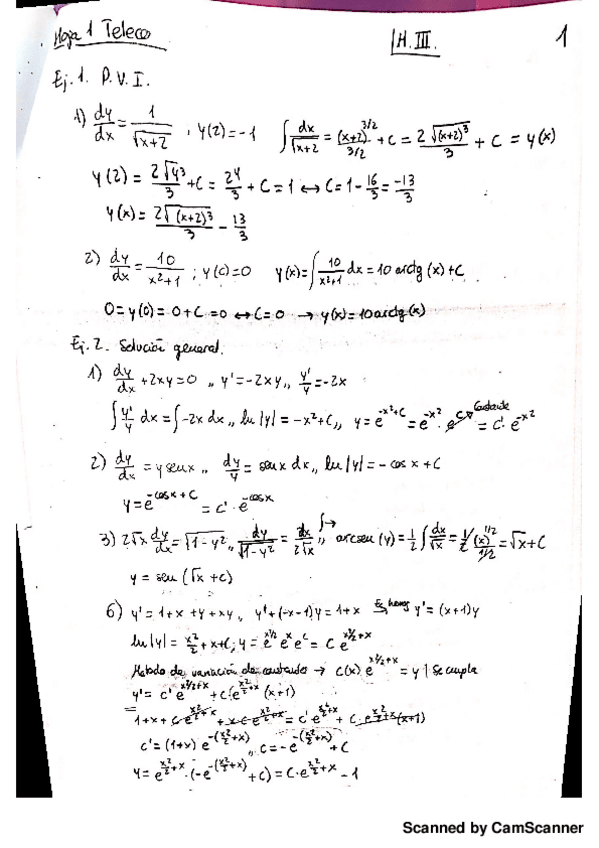 Hoja 1 Teleco H.III. 1
Ej. 1. P.V.I.
1) dy/dx = 1/√(x+2) , y(2)=-1 ∫ dx/√(x+2) = (x+2)^(3/2)/(3/2) + C = 2√(x+2)³/3 + C = y(x)
y(2) = 2√4³/3 + C = 24/3 + C = 1 ↔ C = 1 - 16/3 = -13/3
y(x) = 2√(x+2)³/3 - 13/3
2) dy/dx = 10/(x²+1) ; y(0)=0 y(x) = ∫ 10/(x²+1) dx = 10 arctg (x) + C
0 = y(0) = 0 + C = 0 ↔ C = 0 → y(x) = 10 arctg (x)
Ej. 2. Solución general.
1) dy/dx + 2xy = 0 ,, y' = -2xy ,, y'/y = -2x
∫ y'/y dx = ∫ -2x dx ,, ln |y| = -x² + C ,, y = e^(-x²+C) = e^(-x²) · e^C Constante = c' · e^(-x²)
2) dy/dx = y sen x ,, dy/y = sen x dx ,, ln |y| = - cos x + C
y = e^(-cos x + C) = c' · e^(-cos x)
3) 2√x dy/dx = √(1-y²) ,, dy/√(1-y²) = dx/(2√x) ,, ∫→ arcsen (y) = 1/2 ∫ dx/√x = 1/2 (x)^(1/2)/(1/2) = √x + C
y = sen (√x + C)
6) y' = 1+x+y+xy ,, y' + (-x-1)y = 1+x Ec. homog → y' = (x+1)y
ln |y| = x²/2 + x + C ; y = e^(x²/2) e^x e^C = C e^(x²/2+x)
Metodo de variación de constantes → C(x) e^(x²/2+x) = y | Se cumpla
y' = c' e^(x²/2+x) + C e^(x²/2+x) (x+1)
=
1+x + C·e^(x²/2+x) + x·C·e^(x²/2+x) = c' e^(x²/2+x) + C·e^(x²/2+x) (x+1)
c' = (1+x) e^(-(x²/2+x)) ,, C = -e^(-(x²/2+x)) + C
y = e^(x²/2+x) · (-e^(-(x²/2+x)) + C) = C·e^(x²/2+x) - 1
Scanned by CamScanner